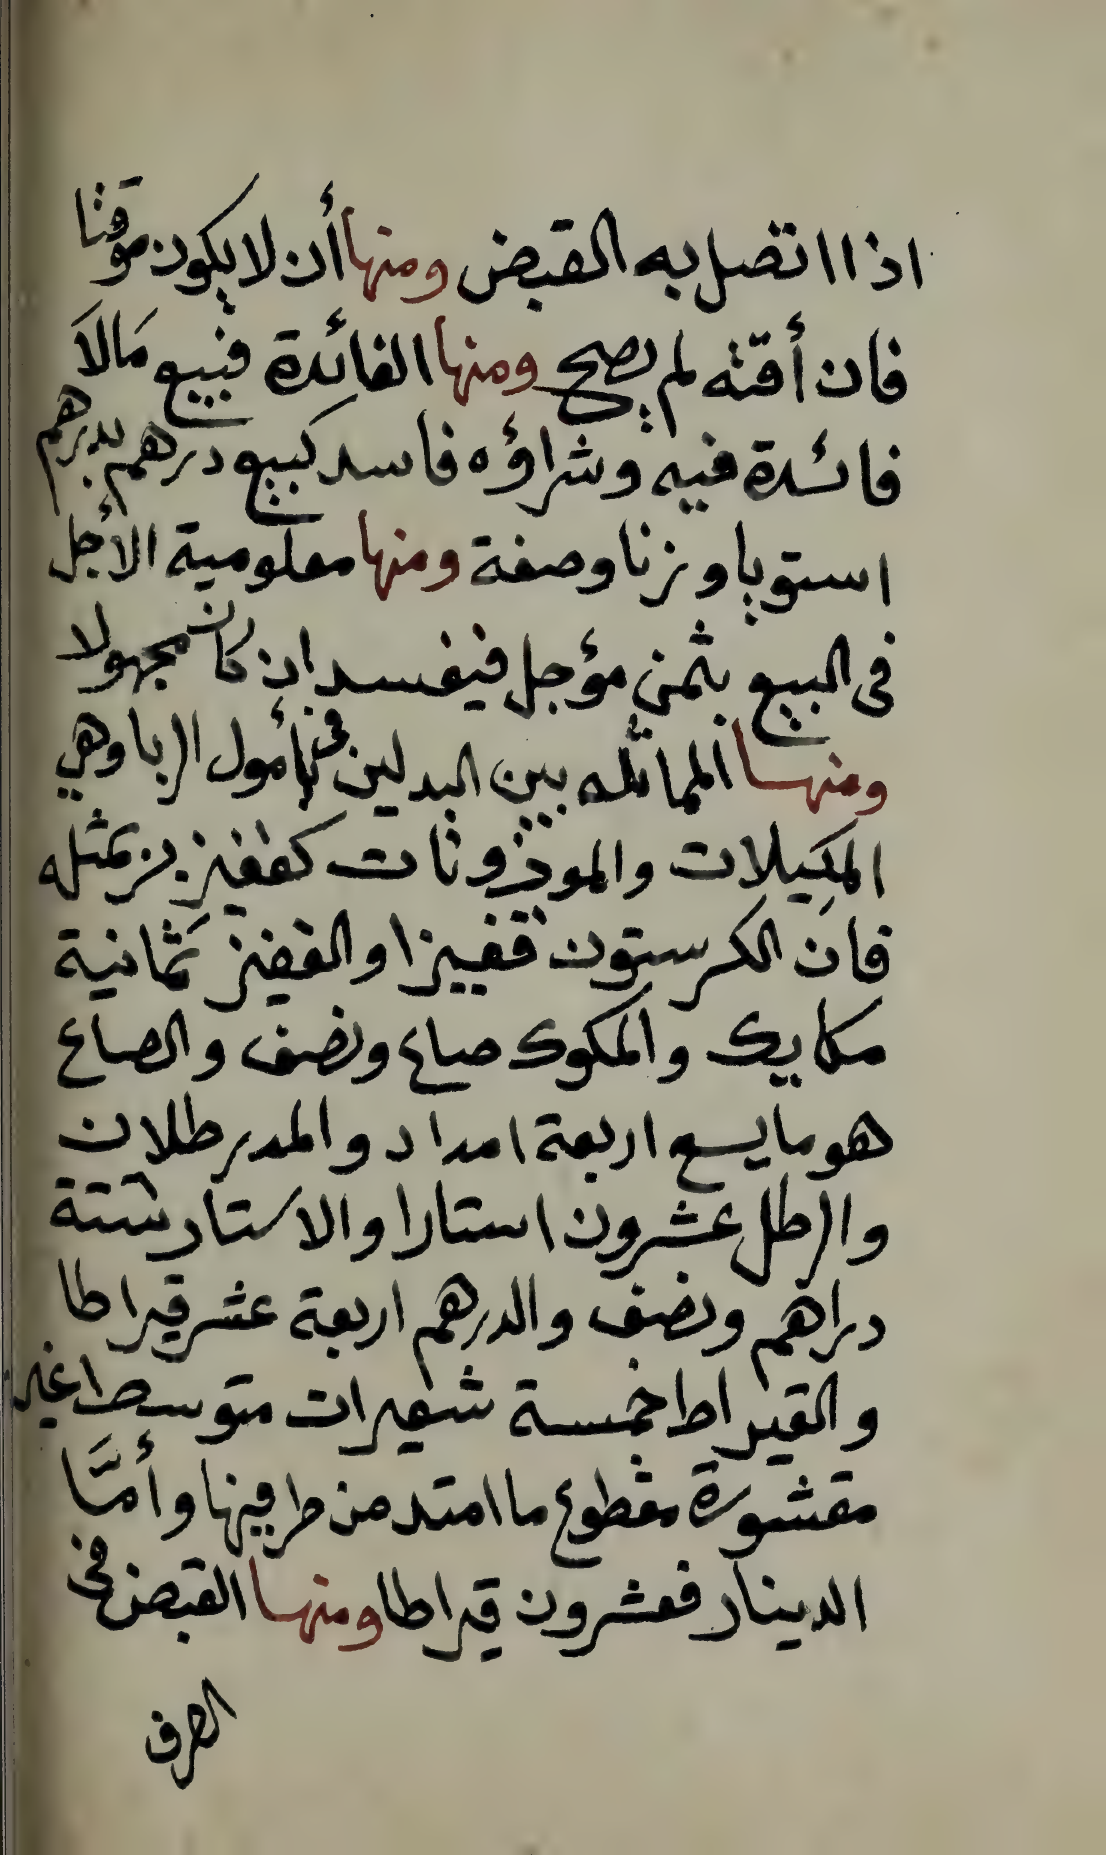 اذا اتصل به القبض ومنها أن لا يكون موقتا
فان أقته لم يصح ومنها الفائدة فبيع مالا
فائدة فيه وشراؤه فاسد كبيع درهم بدرهم
استويا وزنا وصفة ومنها معلومية الأجل
فى البيع بثمن مؤجل فيفسد ان كان مجهولا
ومنها المماثله بين البدلين فى أمول الربا وهي
المكيلات والموزونات كقفيز بر بمثله
فان الكر ستون قفيزا والقفيز ثمانية
مكايك والمكوك صاع ونصف والصاع
هو ما يسع اربعة امداد والمد رطلان
والرطل عشرون استارا والاستار ستة
دراهم ونصف والدرهم اربعة عشر قيراطا
والقيراط خمسة شعيرات متوسطا غير
مقشورة مقطوع ما امتد من طرفيها وأما
الدينار فعشرون قيراطا ومنها القبض فى
الصرف